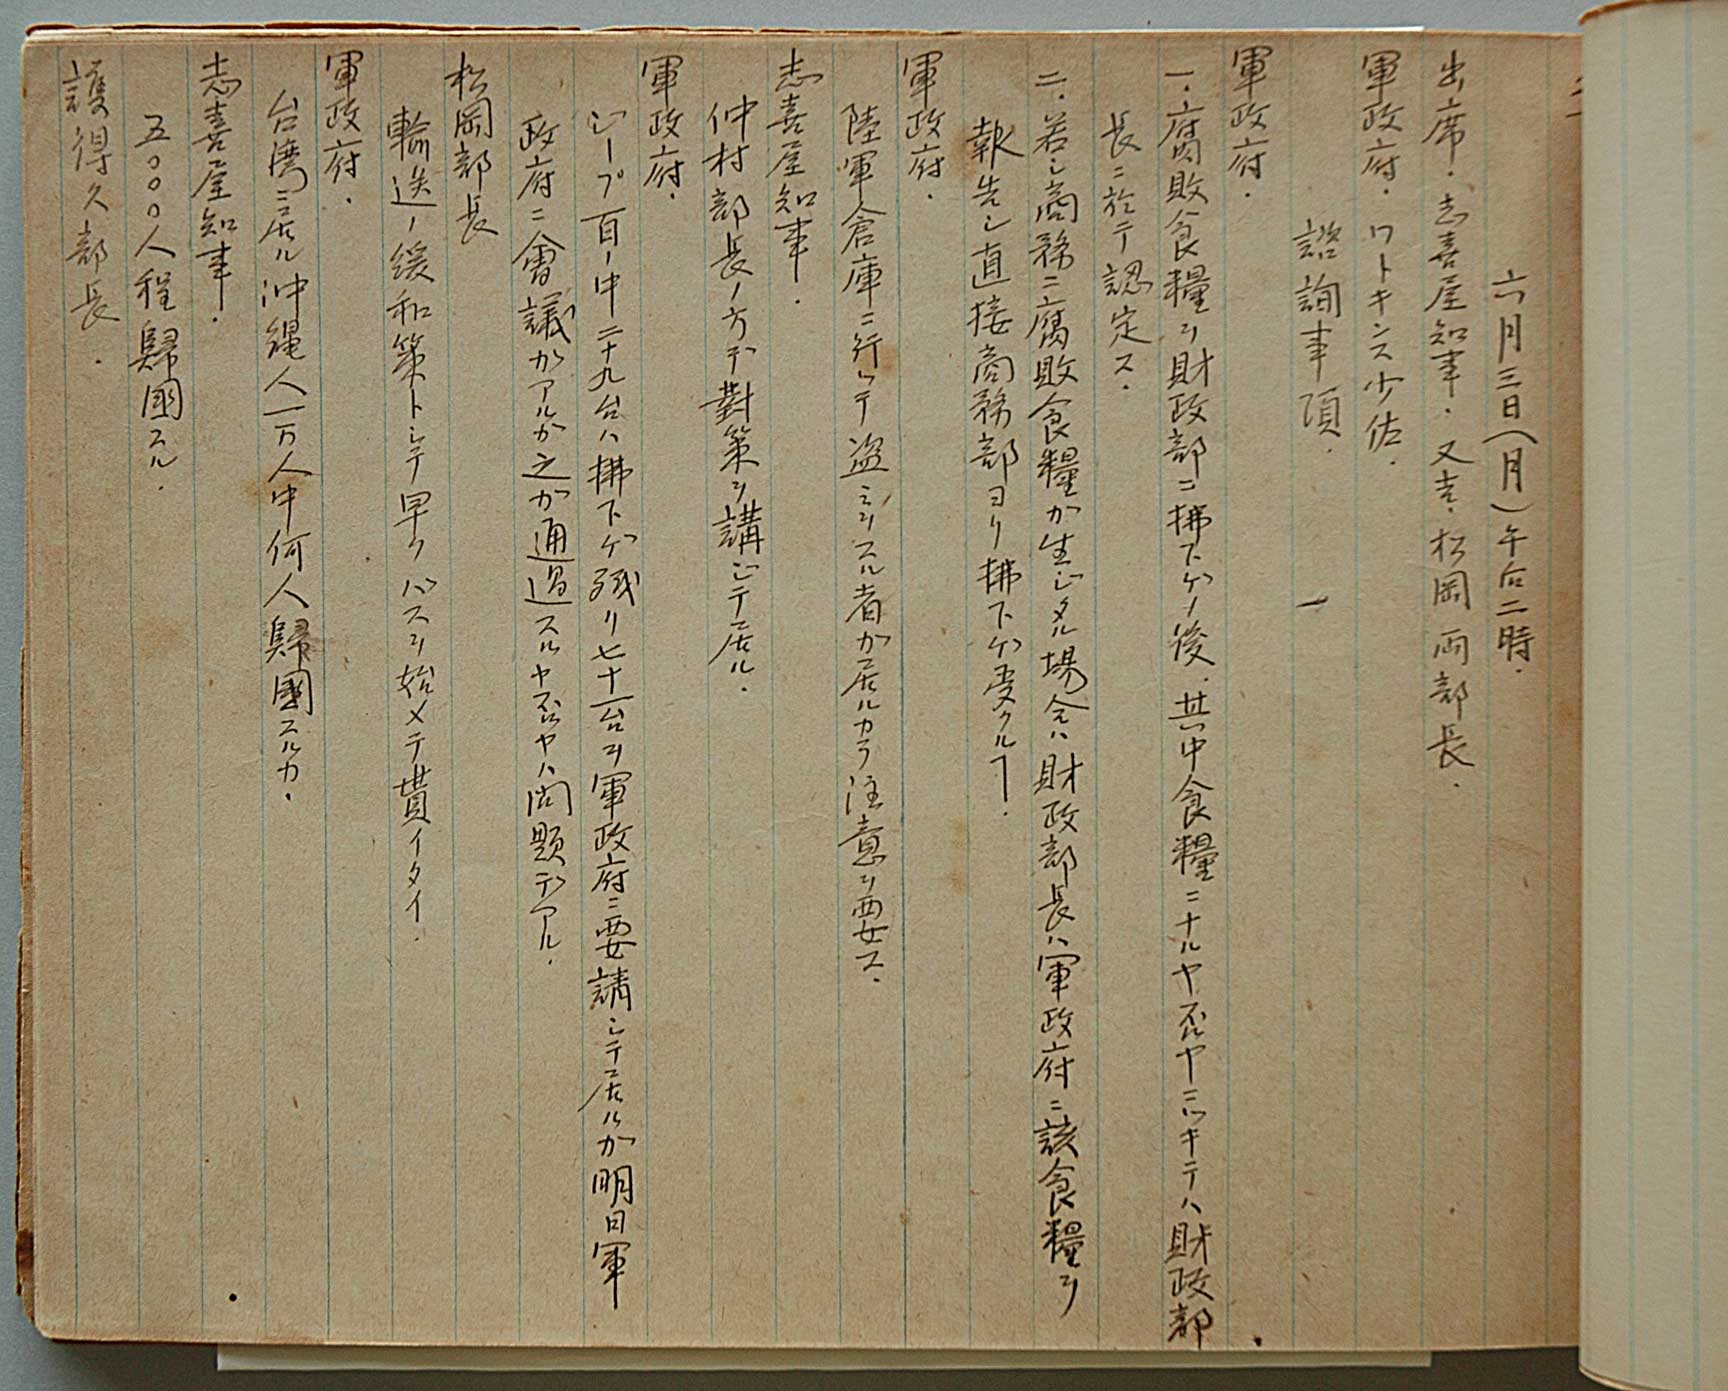 六月三日(月)午后二時.
出席.志喜屋知事.又吉.松岡両部長.
軍政府.ワトキンス少佐.
諮詢事項.
軍政府.
一.腐敗食糧ヲ財政部ニ拂下ゲノ後.其中食糧ニナルヤ否ヤニツキテハ財政部
長ニ於テ認定ス.
二.若シ商務ニ腐敗食糧ガ生ジタル場合ハ財政部長ハ軍政府ニ該食糧ヲ
報告シ直接商務部ヨリ拂下ゲ受クルヿ.
軍政府.
陸軍倉庫ニ行ッテ盗ミヲスル者ガ居ルカラ注意ヲ要ス.
志喜屋知事.
仲村部長ノ方デ對策ヲ講ジテ居ル.
軍政府.
ジープ百ノ中二十九台ハ拂下ゲ残リ七十一台ヲ軍政府ニ要請シテ居ルガ明日軍
政府ニ會議ガアルガ之ガ通過スルヤ否ヤハ問題デアル.
松岡部長
輸送ノ緩和策トシテ早クバスヲ始メテ貰イタイ.
軍政府.
台湾ニ居ル沖縄人一万人中何人歸國スルカ.
志喜屋知事.
五〇〇〇人程歸國スル.
護得久部長.